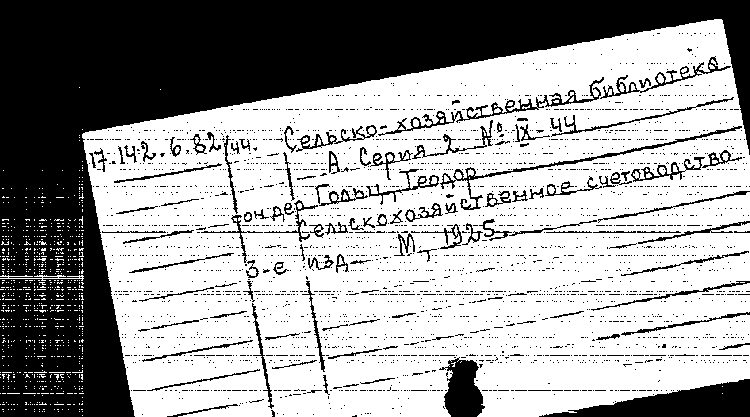 17.142.6.82/44. Сельско-хозяйственная библиотека
А. Серия 2 № IX-44
фон дер Гольц, Теодор
Сельскохозяйственное счетоводство
3-е изд. М, 1925.